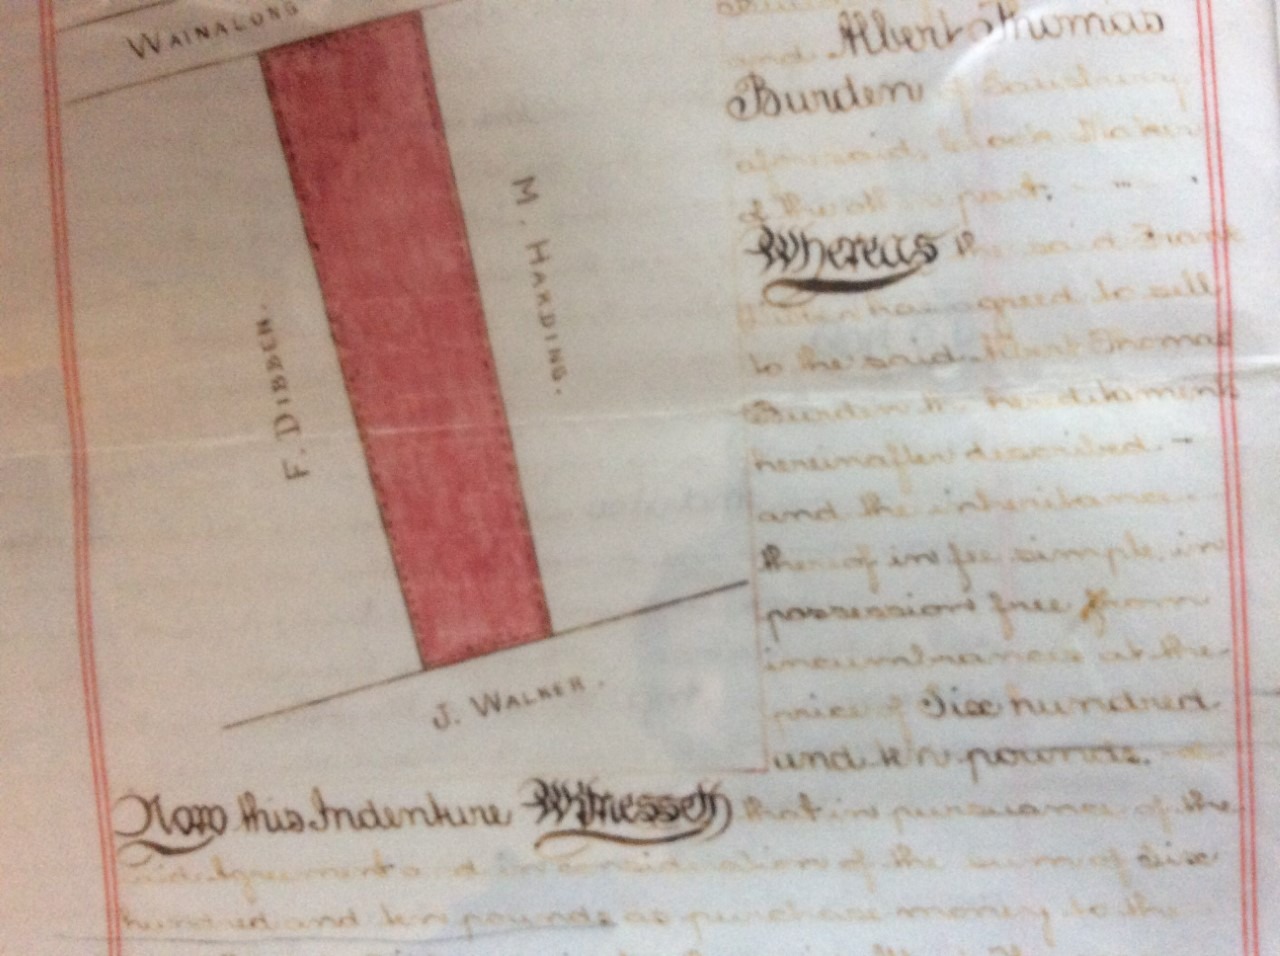 WAINALONG
M. HARDING.
F. DIBBEN.
J. WALKER.
and Albert Thomas
Burden of Salisbury
aforesaid, Coach Maker
of the other part.
Whereas the said Frank
has agreed to sell
to the said Albert Thomas
Burden the hereditaments
hereinafter described
and the inheritance
thereof in fee simple in
possession free from
incumbrances at the
price of Six hundred
and ten pounds.
Now this Indenture Witnesseth that in pursuance of the
said Agreement and in consideration of the sum of Six
hundred and ten pounds as purchase money to the